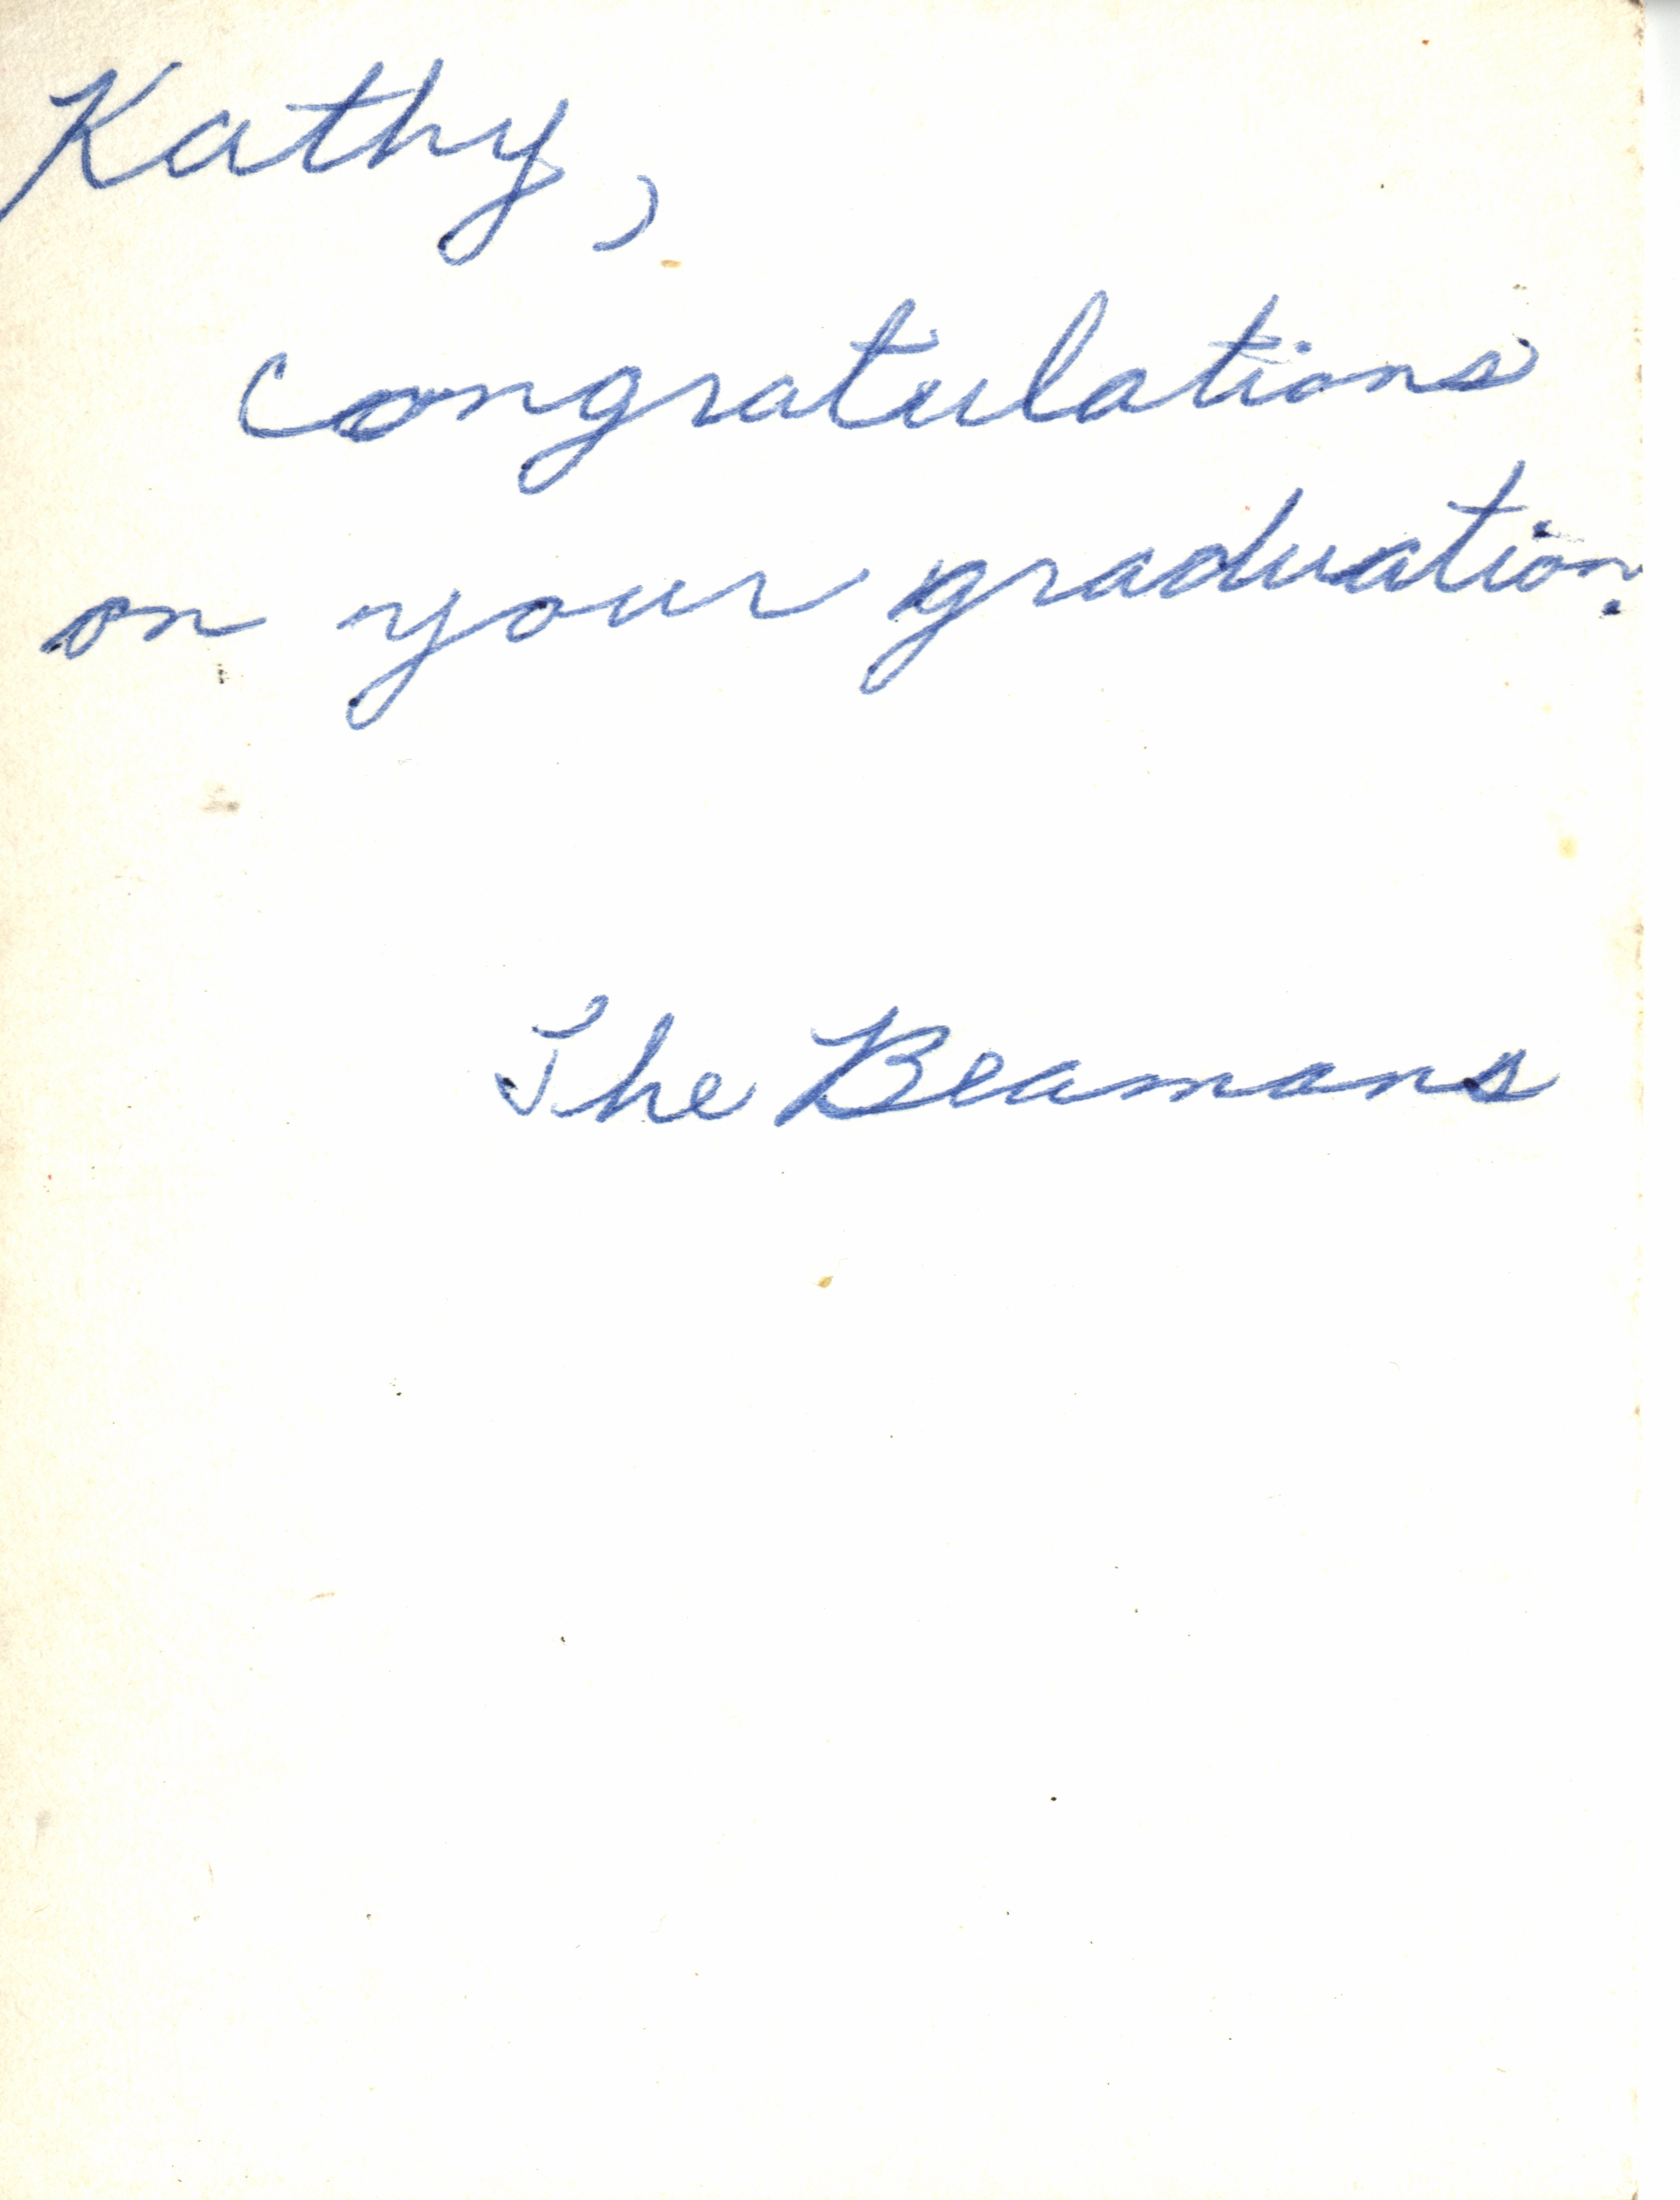 Kathy,
Congratulations
on your graduation.
The Beamans